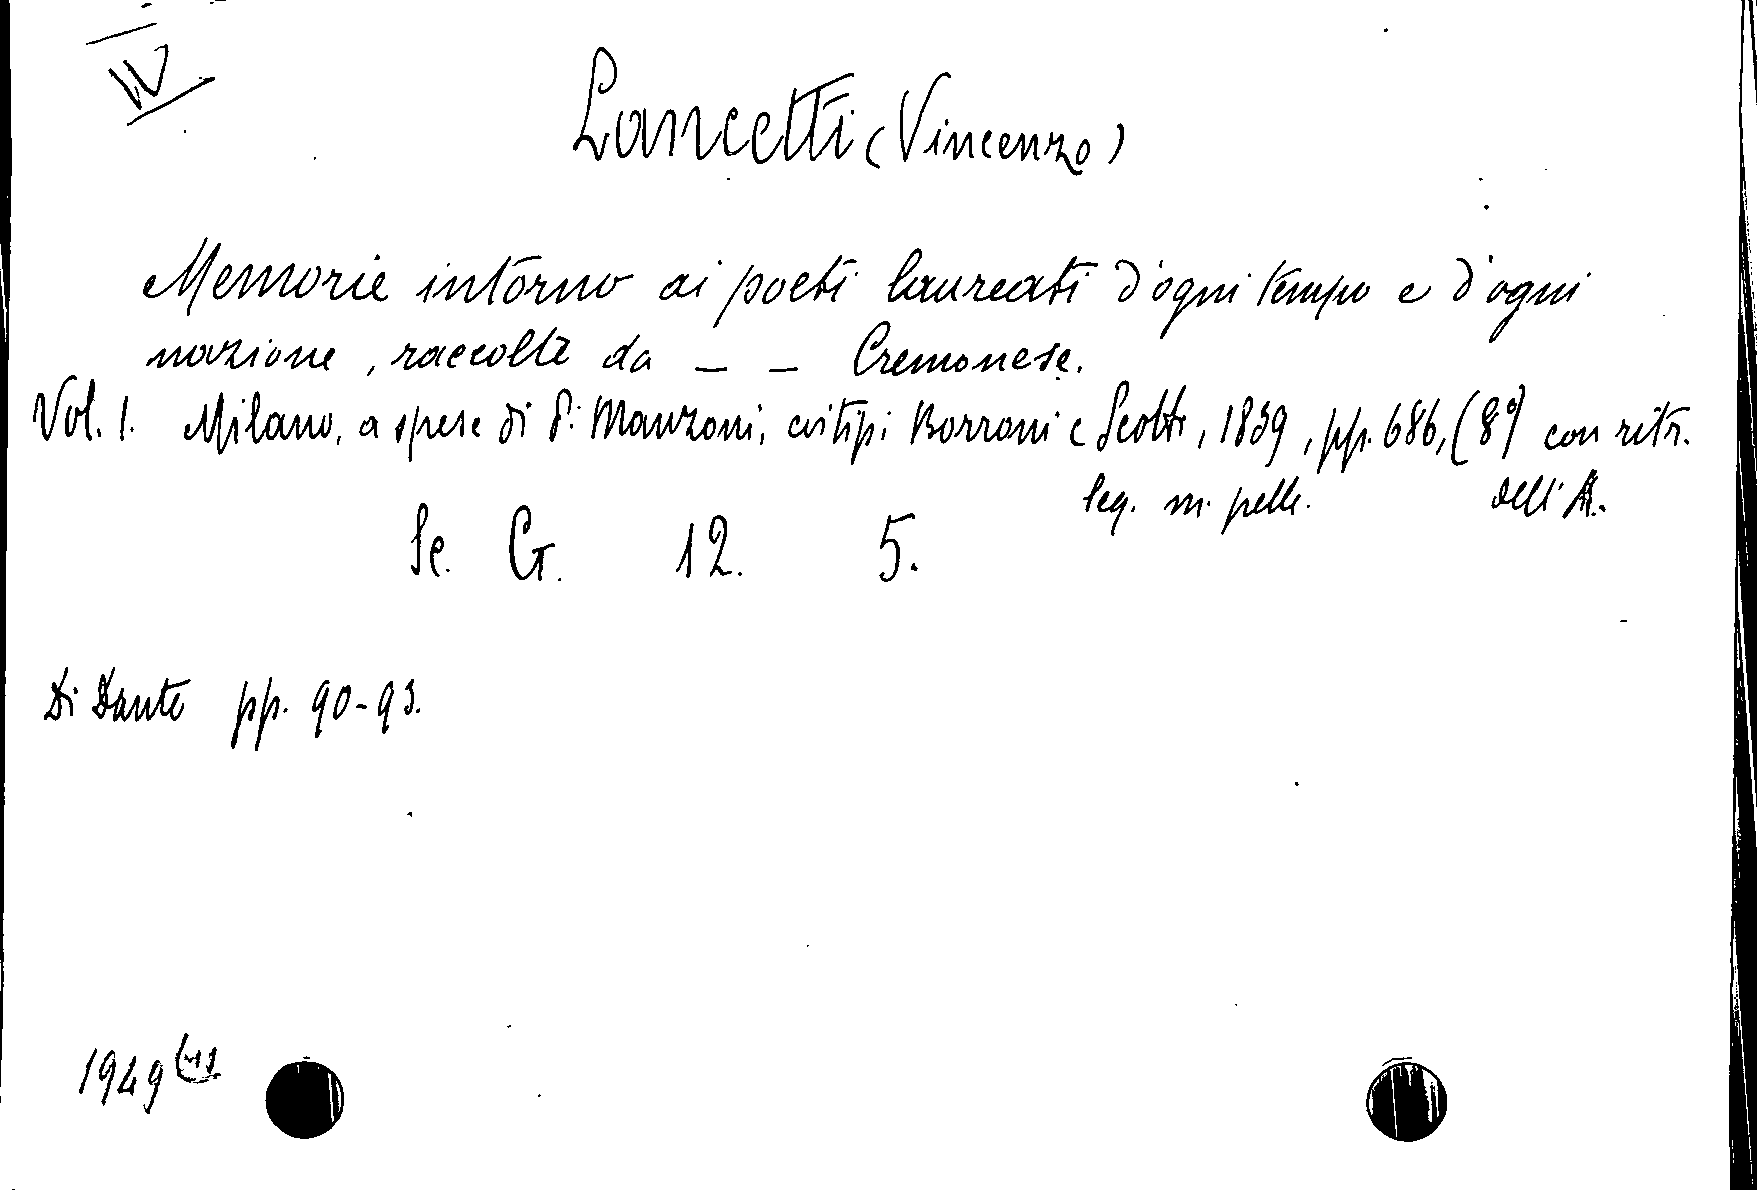 IV
Lancetti (Vincenzo)
Memorie intorno ai poeti laureati d'ogni tempo e d'ogni
nazione, raccolte da _ _ Cremonese.
Vol. 1. Milano, a spese di P. Manzoni, coi tipi Borroni e Scotti, 1839, pp. 686, (8º) con ritr.
leg. m. pelle. dell'A.
Se. G. 12. 5.
Di Dante pp. 90-93.
1949